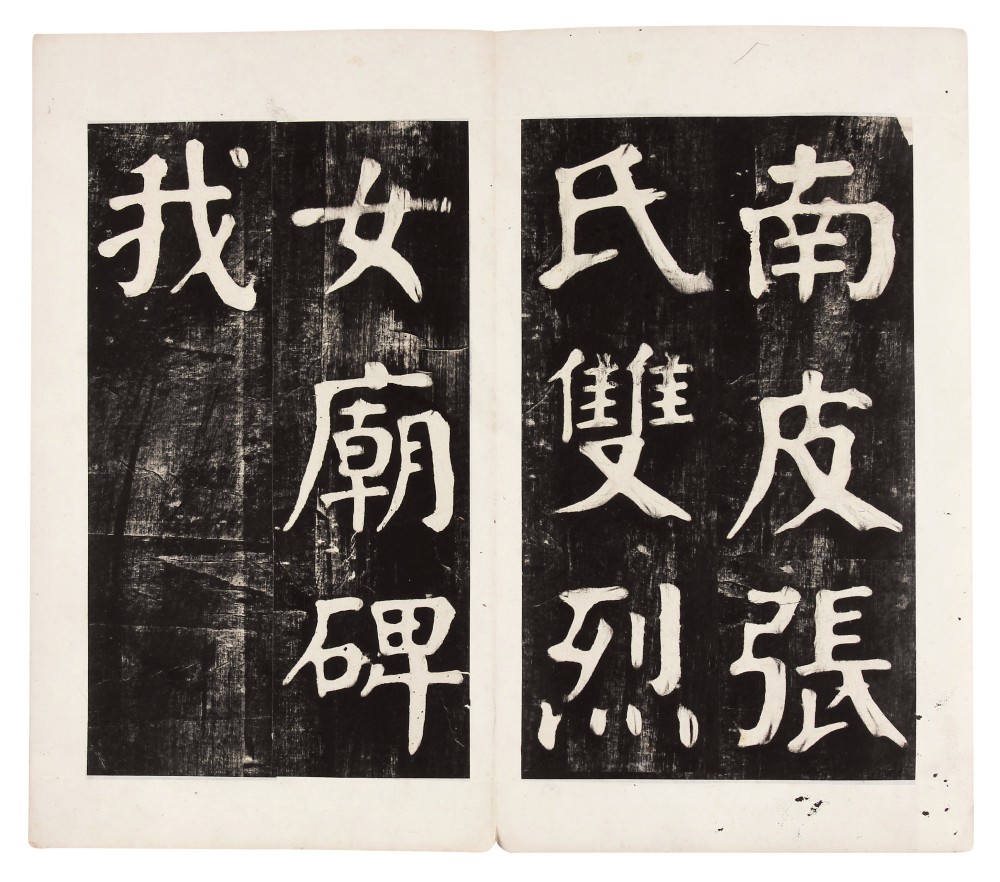 南皮張
氏雙烈
女廟碑
我